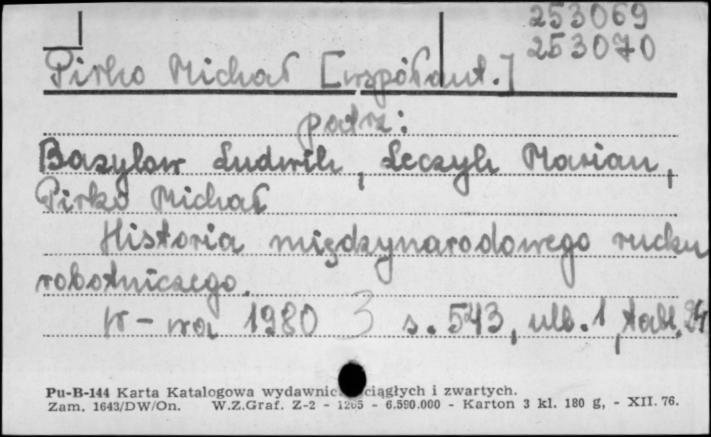 253069
253070
Pirko Michał [współaut.]
patrz:
Bazylow Ludwik, Leczyk Marian,
Pirko Michał
Historia międzynarodowego ruchu
robotniczego.
W-wa 1980 3 s. 543, nlb. 1, tabl. 24
Pu-B-144 Karta Katalogowa wydawnic ciągłych i zwartych.
Zam. 1643/DW/On. W.Z.Graf. Z-2 - 1205 - 6.590.000 - Karton 3 kl. 180 g, - XII. 76.